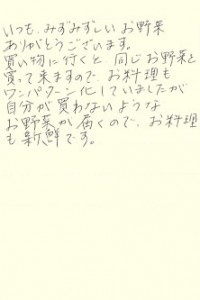 いつも、みずみずしいお野菜
ありがとうございます。
買い物に行くと、同じお野菜を
買って来ますので、お料理も
ワンパターン化していましたが
自分が買わないような
お野菜が届くので、お料理
も新鮮です。